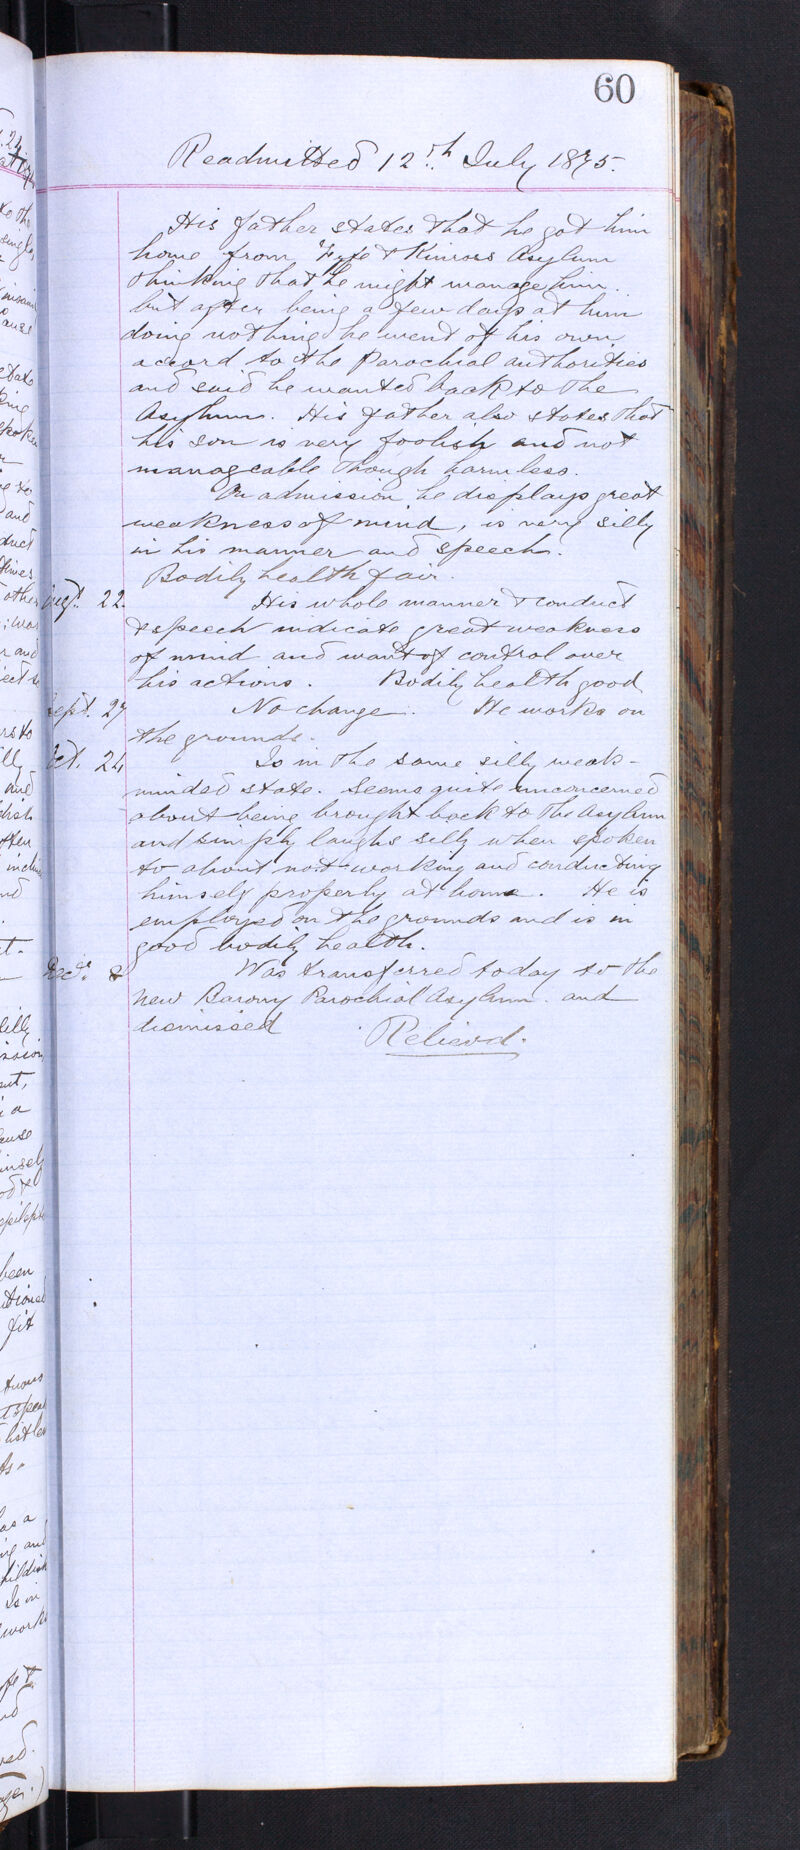 60
Readmitted 12th July 1875.
His father states that he got him
home from Fyfe & Kinross Asylum
thinking that he might manage him.
but after being a few days at him
doing nothing he went of his own
accord to the Parochial authorities
and said he wanted back to the
Asylum. His father also states that
his son is very foolish and not
manageable though harmless.
On admission he displays great
weakness of mind, is very silly
in his manner and speech.
Bodily health fair.
Augt. 22. His whole manner & conduct
& speech indicate great weakness
of mind and want of control over
his actions. Bodily health good
Sept. 27 No change. He works on
the grounds.
Oct. 24 Is in the same silly weak-
minded state. Seems quite unconcerned
about being brought back to the Asylum
and simply laughs silly when spoken
to about not working and conducting
himself properly at home. He is
employed on the grounds and is in
good bodily health.
Decr. 8 Was transferred today to the
New Barony Parochial Asylum. and
dismissed Relievd.